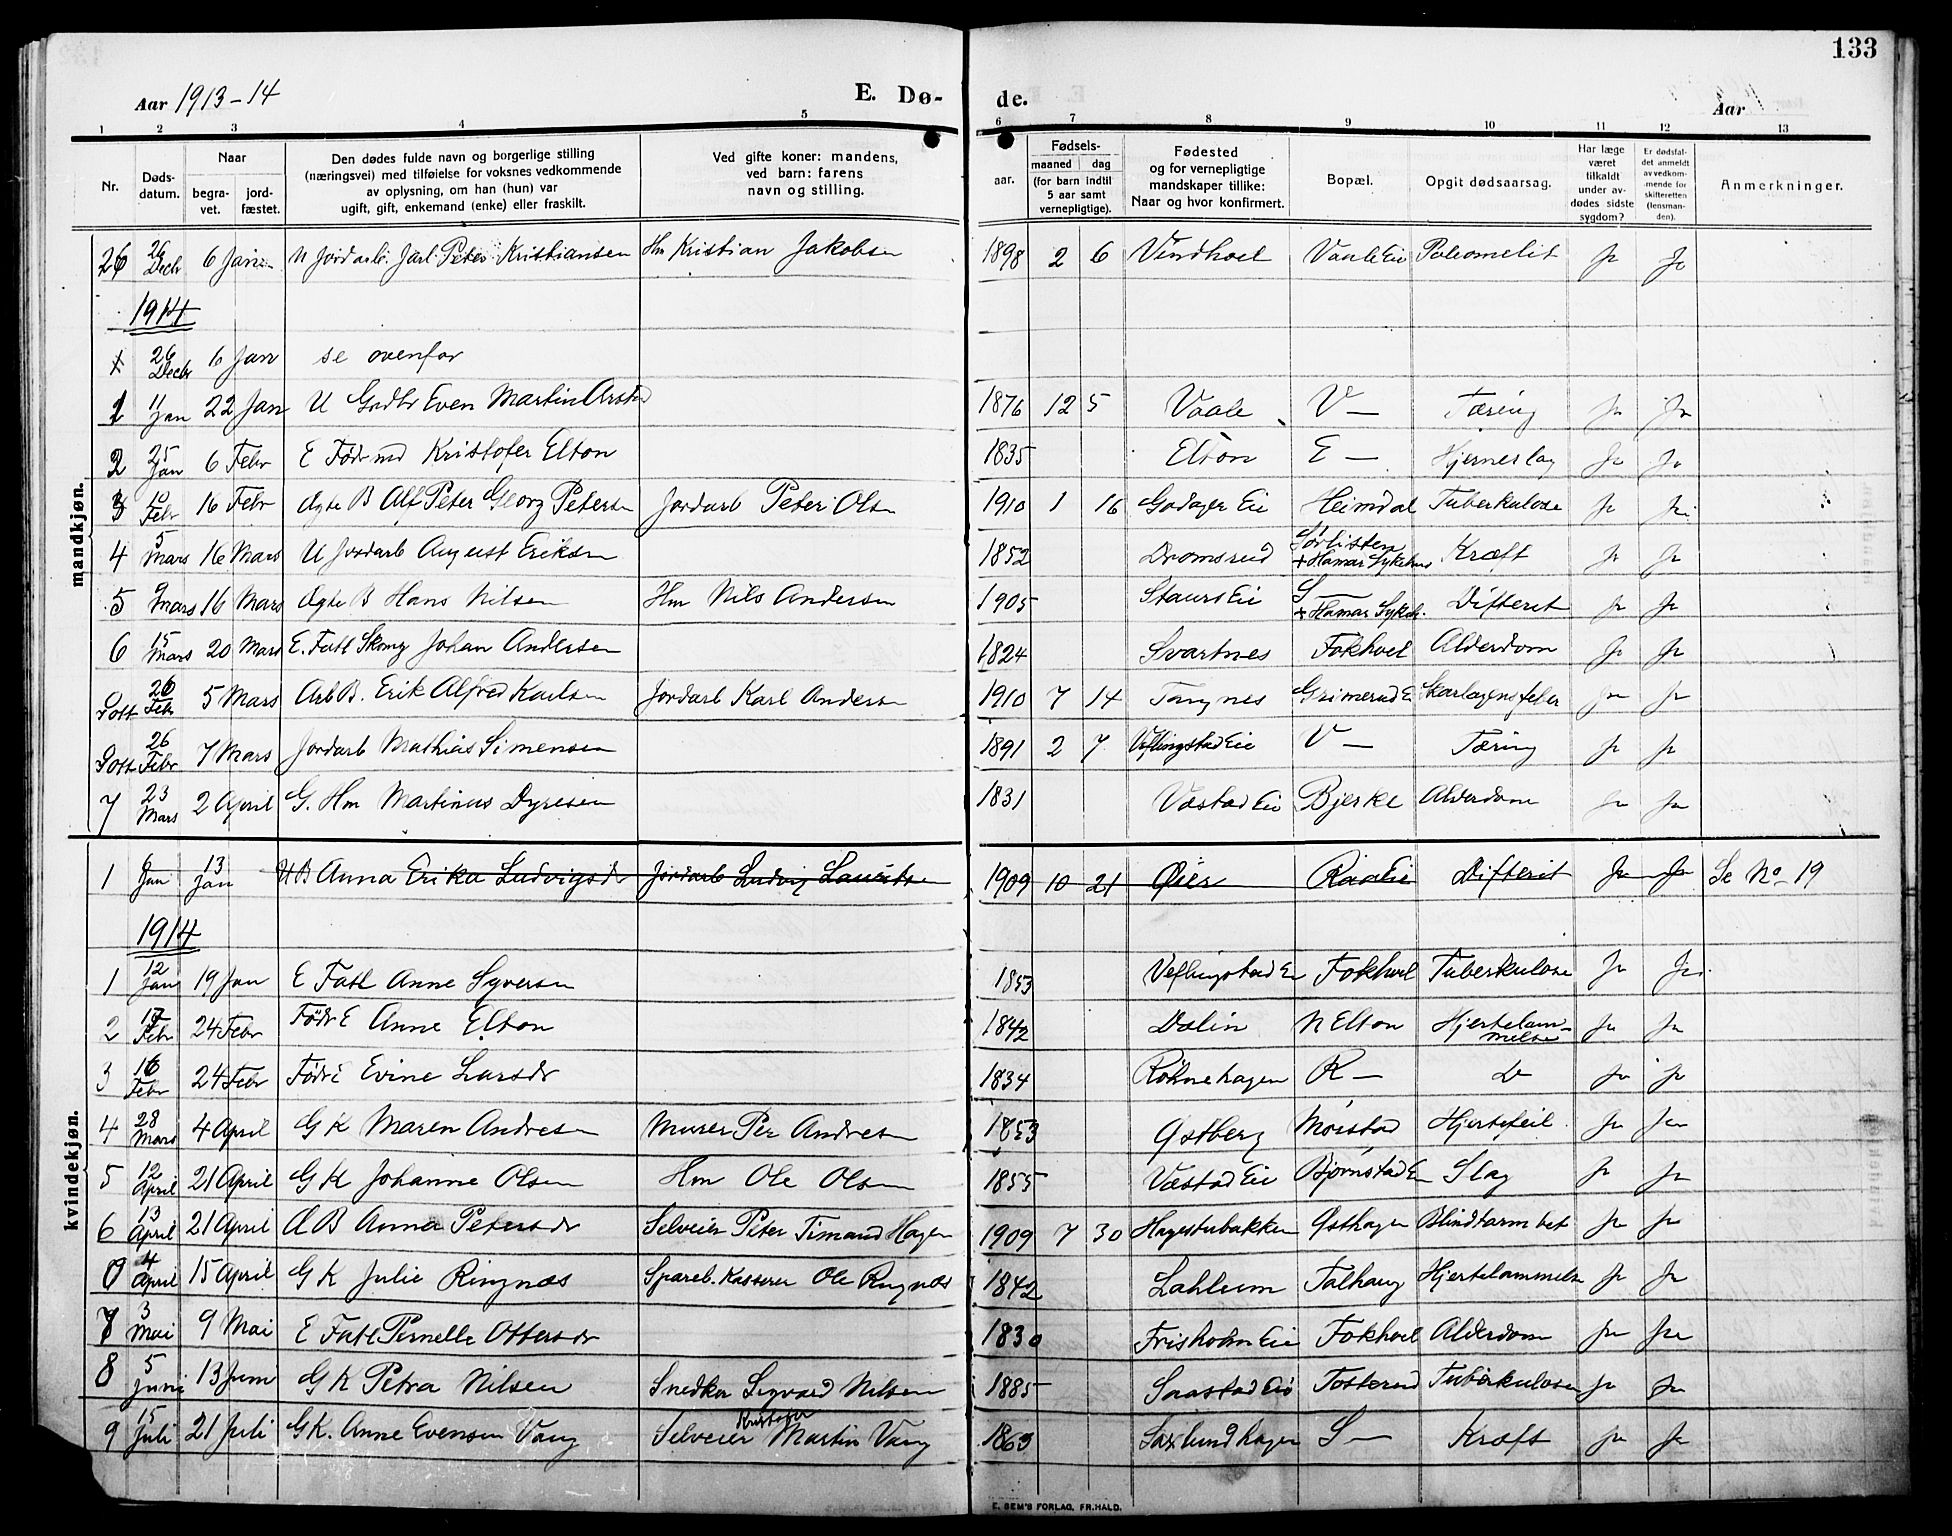 133
Aar 1913-14 E. Dø- de. Aar
1 2 3 4 5 6 7 8 9 10 11 12 13
Nr. Døds-datum. Naar begra-vet. jord-fæstet. Den dødes fulde navn og borgerlige stilling (næringsvei) med tilføielse for voksnes vedkommende av oplysning, om han (hun) var ugift, gift, enkemand (enke) eller fraskilt. Ved gifte koner: mandens, ved barn: farens navn og stilling. aar. Fødsels- maaned dag (for barn indtil 5 aar samt vernepligtige). Fødested og for vernepligtige mandskaper tillike: Naar og hvor konfirmert. Bopæl. Opgit dødsaarsag. Har læge været tilkaldt under av-dødes sidste sygdom? Er dødsfal-det anmeldt av vedkom-mende for skifteretten (lensman-den). Anmerkninger.
mandkjøn.
26 26 Decbr 6 Jan U Jordarb. Jarl Peter Kristiansen Hm Kristian Jakobsen 1898 2 6 Vindhoel Vaale Eie Poleomelit Ja Ja
1914
1 26 Decbr 6 Jan se ovenfor
1 11 Jan 22 Jan U Gadbr Even Martin 1876 12 5 Vaale V— Tæring Ja Ja
2 25 Jan 6 Febr E Födrmd Kristofer Elton 1835 Elton E— Hjerneslag Ja Ja
3 Febr 16 Febr Ægte B Alf Peter Georg Petersen Jordarb Peter Olsen 1910 1 16 Godager Eie Heimdal Tuberkulose Ja Ja
4 5 Mars 16 Mars U Jordarb August Eriksen 1852 Dromsrud Sørlisten + Hamar Sykehus Kræft Ja Ja
5 9 Mars 16 Mars Ægte B Hans Nilsen Hm Nils Andersen 1905 Staurs Eie S— + Hamar Sykeh. Difterit Ja Ja
6 15 Mars 20 Mars E. Fatl Skomg Johan Andersen 1824 Svartnes Fokhoel Alderdom Ja Ja
Pott 26 Febr 5 Mars Arb B. Erik Alfred Karlsen Jordarb Karl Andersen 1910 7 14 Tangnes Grimerud E Skarlagensfeber Ja Ja
Pott 26 Febr 7 Mars Jordarb Mathias Simensen 1891 2 7 Veflingstad Eie V— Tæring Ja Ja
7 23 Mars 2 April G. Hm Martinus Dyresen 1831 Væstad Eie Bjerke Alderdom Ja Ja
kvindekjøn.
1 Jan 13 Jan U B Anna Erika Ludvigsdr Jordarb Ludvig Lauritsen 1909 10 21 Øier Raa Eie Difterit Ja Ja Se No 19
1914
1 12 Jan 19 Jan E Fatl Anne Syversen 1853 Veflingstad Eie Fokhoel Tuberkulose Ja Ja
2 17 Febr 24 Febr Födr E Anne Elton 1842 Dælin N Elton Hjertelammelse Ja Ja
3 16 Febr 24 Febr Födr E Evine Larsdr 1834 Röhnehagen R— Do Ja Ja
4 28 Mars 4 April G K Maren Andresen Murer Per Andresen 1853 Østberg Mørstad Hjertefeil Ja Ja
5 12 April 21 April G K Johanne Olsen Hm Ole Olsen 1855 Væstad Eie Bjørnstad E Slag Ja Ja
6 13 April 21 April Æ B Anna Petersdr Selveier Peter Timand Hagen 1909 7 30 Hagestubakken Østhagen Blindtarm bet Ja Ja
0 4 April 15 April G K Julie Ringnæs Spareb. Kasserer Ole Ringnæs 1842 Lahlum Solhaug Hjertelammelse Ja Ja
7 3 Mai 9 Mai E Fatl Pernelle Ottersdr 1830 Frisholm Eie Fokhoel Alderdom Ja Ja
8 5 Juni 13 Juni G K Petra Nilsen Snedker Sigvard Nilsen 1885 Saastad Eie Tosterud Tuberkulose Ja Ja
9 15 Juli 21 Juli G K. Anne Evensen Vang Selveier Kristofer Martin Vang 1863 Saxlundhagen S— Kræft Ja Ja
E. SEM'S FORLAG, FR.HALD.